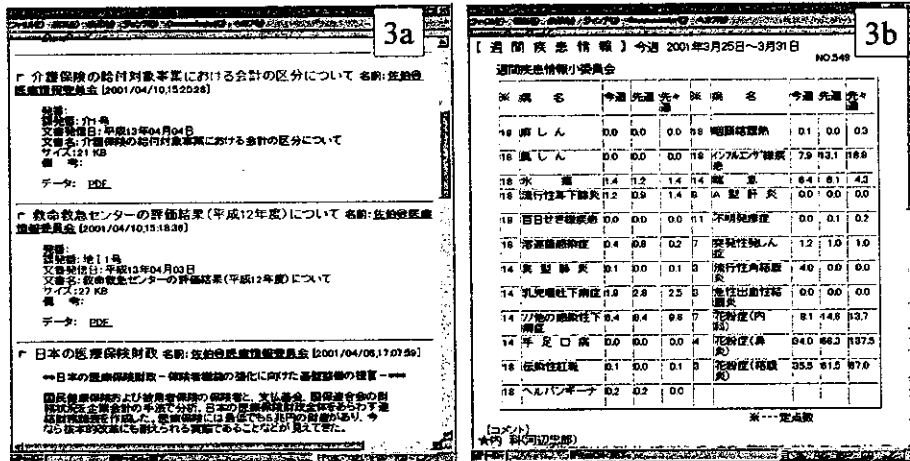 3a
介護保険の給付対象事業における会計の区分について 名前: 佐伯@
医療情報委員会 [2001/04/10,15:20:28]
発番:
課発番: 介1号
文書発信日: 平成13年04月04日
文書名: 介護保険の給付対象事業における会計の区分について
サイズ: 21 KB
備 考:
データ: PDF
救命救急センターの評価結果(平成12年度)について 名前: 佐伯@医療
情報委員会 [2001/04/10,15:18:36]
発番:
課発番: 地I1号
文書発信日: 平成13年04月03日
文書名: 救命救急センターの評価結果(平成12年度)について
サイズ: 27 KB
備 考:
データ: PDF
日本の医療保険財政 名前: 佐伯@医療情報委員会 [2001/04/06,17:07:59]
日本の医療保険財政-保険者機能の強化に向けた基盤整備の提言-
国民健康保険および被用者保険の保険者と、支払基金、国保連合会の財
務状況を企業会計の手法で分析、日本の医療保険財政全体をあらわす連
結財務諸表を作成した。医療保険には最低でも5兆円の財産があり、今
なら抜本的改革にも耐えられる実態であることなどが見えてきた。
3b
【 週 間 疾 患 情 報 】 今週 2001年3月25日~3月31日
NO.549
週間疾患情報小委員会
※ 病 名 今週 先週 先々週 ※ 病 名 今週 先週 先々週
18 麻 し ん 0.0 0.0 0.0 18 咽頭結膜熱 0.1 0.0 0.3
18 風 し ん 0.0 0.0 0.0 18 インフルエンザ様疾患 7.9 13.1 18.8
18 水 痘 1.4 1.2 1.4 14 喘 息 6.4 6.1 4.3
18 流行性耳下腺炎 1.2 0.9 1.4 A 型 肝 炎 0.0 0.0 0.0
18 百日せき様疾患 0.0 0.0 0.0 11 不明発疹症 0.0 0.1 0.2
18 溶連菌感染症 0.4 0.8 0.2 7 突発性発しん症 1.2 1.0 1.0
14 異 型 肺 炎 0.1 0.0 0.1 3 流行性角結膜炎 4.0 0.0 0.0
14 乳児嘔吐下痢症 1.9 2.8 2.5 3 急性出血性結膜炎 0.0 0.0 0.0
14 ソノ他の感染性下痢症 8.4 8.4 9.6 7 花粉症(内科) 8.1 14.6 13.7
14 手 足 口 病 0.0 0.0 0.0 4 花粉症(鼻炎) 94.0 66.3 137.5
18 伝染性紅斑 0.1 0.0 0.1 3 花粉症(結膜炎) 35.5 61.5 67.0
18 ヘルパンギーナ 0.2 0.2 0.0
※---定点数
[コメント]
★内 科(河辺忠郎)